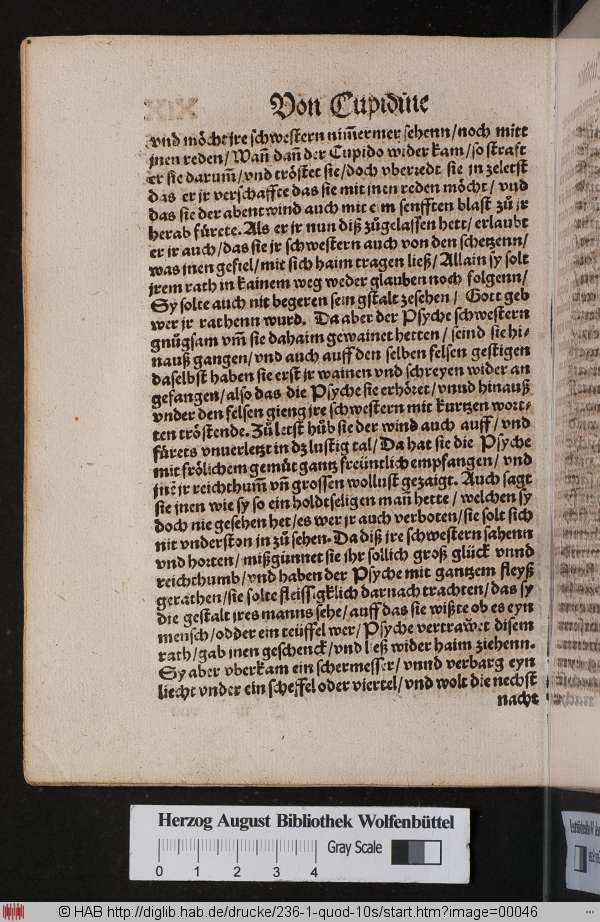 Von Cupidine
vnd möcht jre schwestern nim̃ermer sehenn/noch mitt
jnen reden/Wañ dañ der Cupido wider kam/so straft
er sie darum̃/vnd tröstet sie/doch vberredt sie in zeletst
das er jr verschaffte das sie mit jnen reden möcht/vnd
das sie der abent wind auch mit eim senfften blast zů jr
herab fůrete. Als er jr nun diß zůgelassen hett/erlaubt
er jr auch/das sie jr schwestern auch von den schetzenn/
was jnen gefiel/mit sich haim tragen ließ/Allain sy solt
jrem rath in kainem weg weder glauben noch folgenn/
Sy solte auch nit begeren sein gstalt zesehen/ Gott geb
wer jr rathenn wurd. Da aber der Psyche schwestern
gnůgsam vm̃ sie dahaim gewainet hetten/seind sie hi-
nauß gangen/vnd auch auff den selben felsen gestigen
daselbst haben sie erst jr wainen vnd schreyen wider an
gefangen/also das die Psyche sie erhöret/vnnd hinauß
vnder den felsen gieng jre schwestern mit kurtzen wort-
ten tröstende. Zů letst hůb sie der wind auch auff/vnd
fůrets vnuerletzt in dz lustig tal/Da hat sie die Psyche
mit frölichem gemůt gantz freüntlich empfangen/vnd
jnẽ jr reichthum̃ vñ grossen wollust gezaigt. Auch sagt
sie jnen wie sy so ein holdtseligen mañ hette/welchen sy
doch nie gesehen het/es wer jr auch verboten/sie solt sich
nit vnderston in zů sehen. Da diß jre schwestern sahenn
vnd horten/mißgünnet sie ihr sollich groß glück vnnd
reichthumb/vnd haben der Psyche mit gantzem fleyß
gerathen/sie solte fleissigklich darnach trachten/das sy
die gestalt jres manns sehe/auff das sie wißte ob es eyn
mensch/odder ein teüffel wer/Psyche vertrawet disem
rath/gab jnen geschenck/vnd ließ wider haim ziehenn.
Sy aber vberkam ein schermesser/vnnd verbarg eyn
liecht vnder ein scheffel oder viertel/vnd wolt die nechst
nacht
Herzog August Bibliothek Wolfenbüttel
Gray Scale
0 1 2 3 4
© HAB http://diglib.hab.de/drucke/236-1-quod-10s/start.htm?image=00046